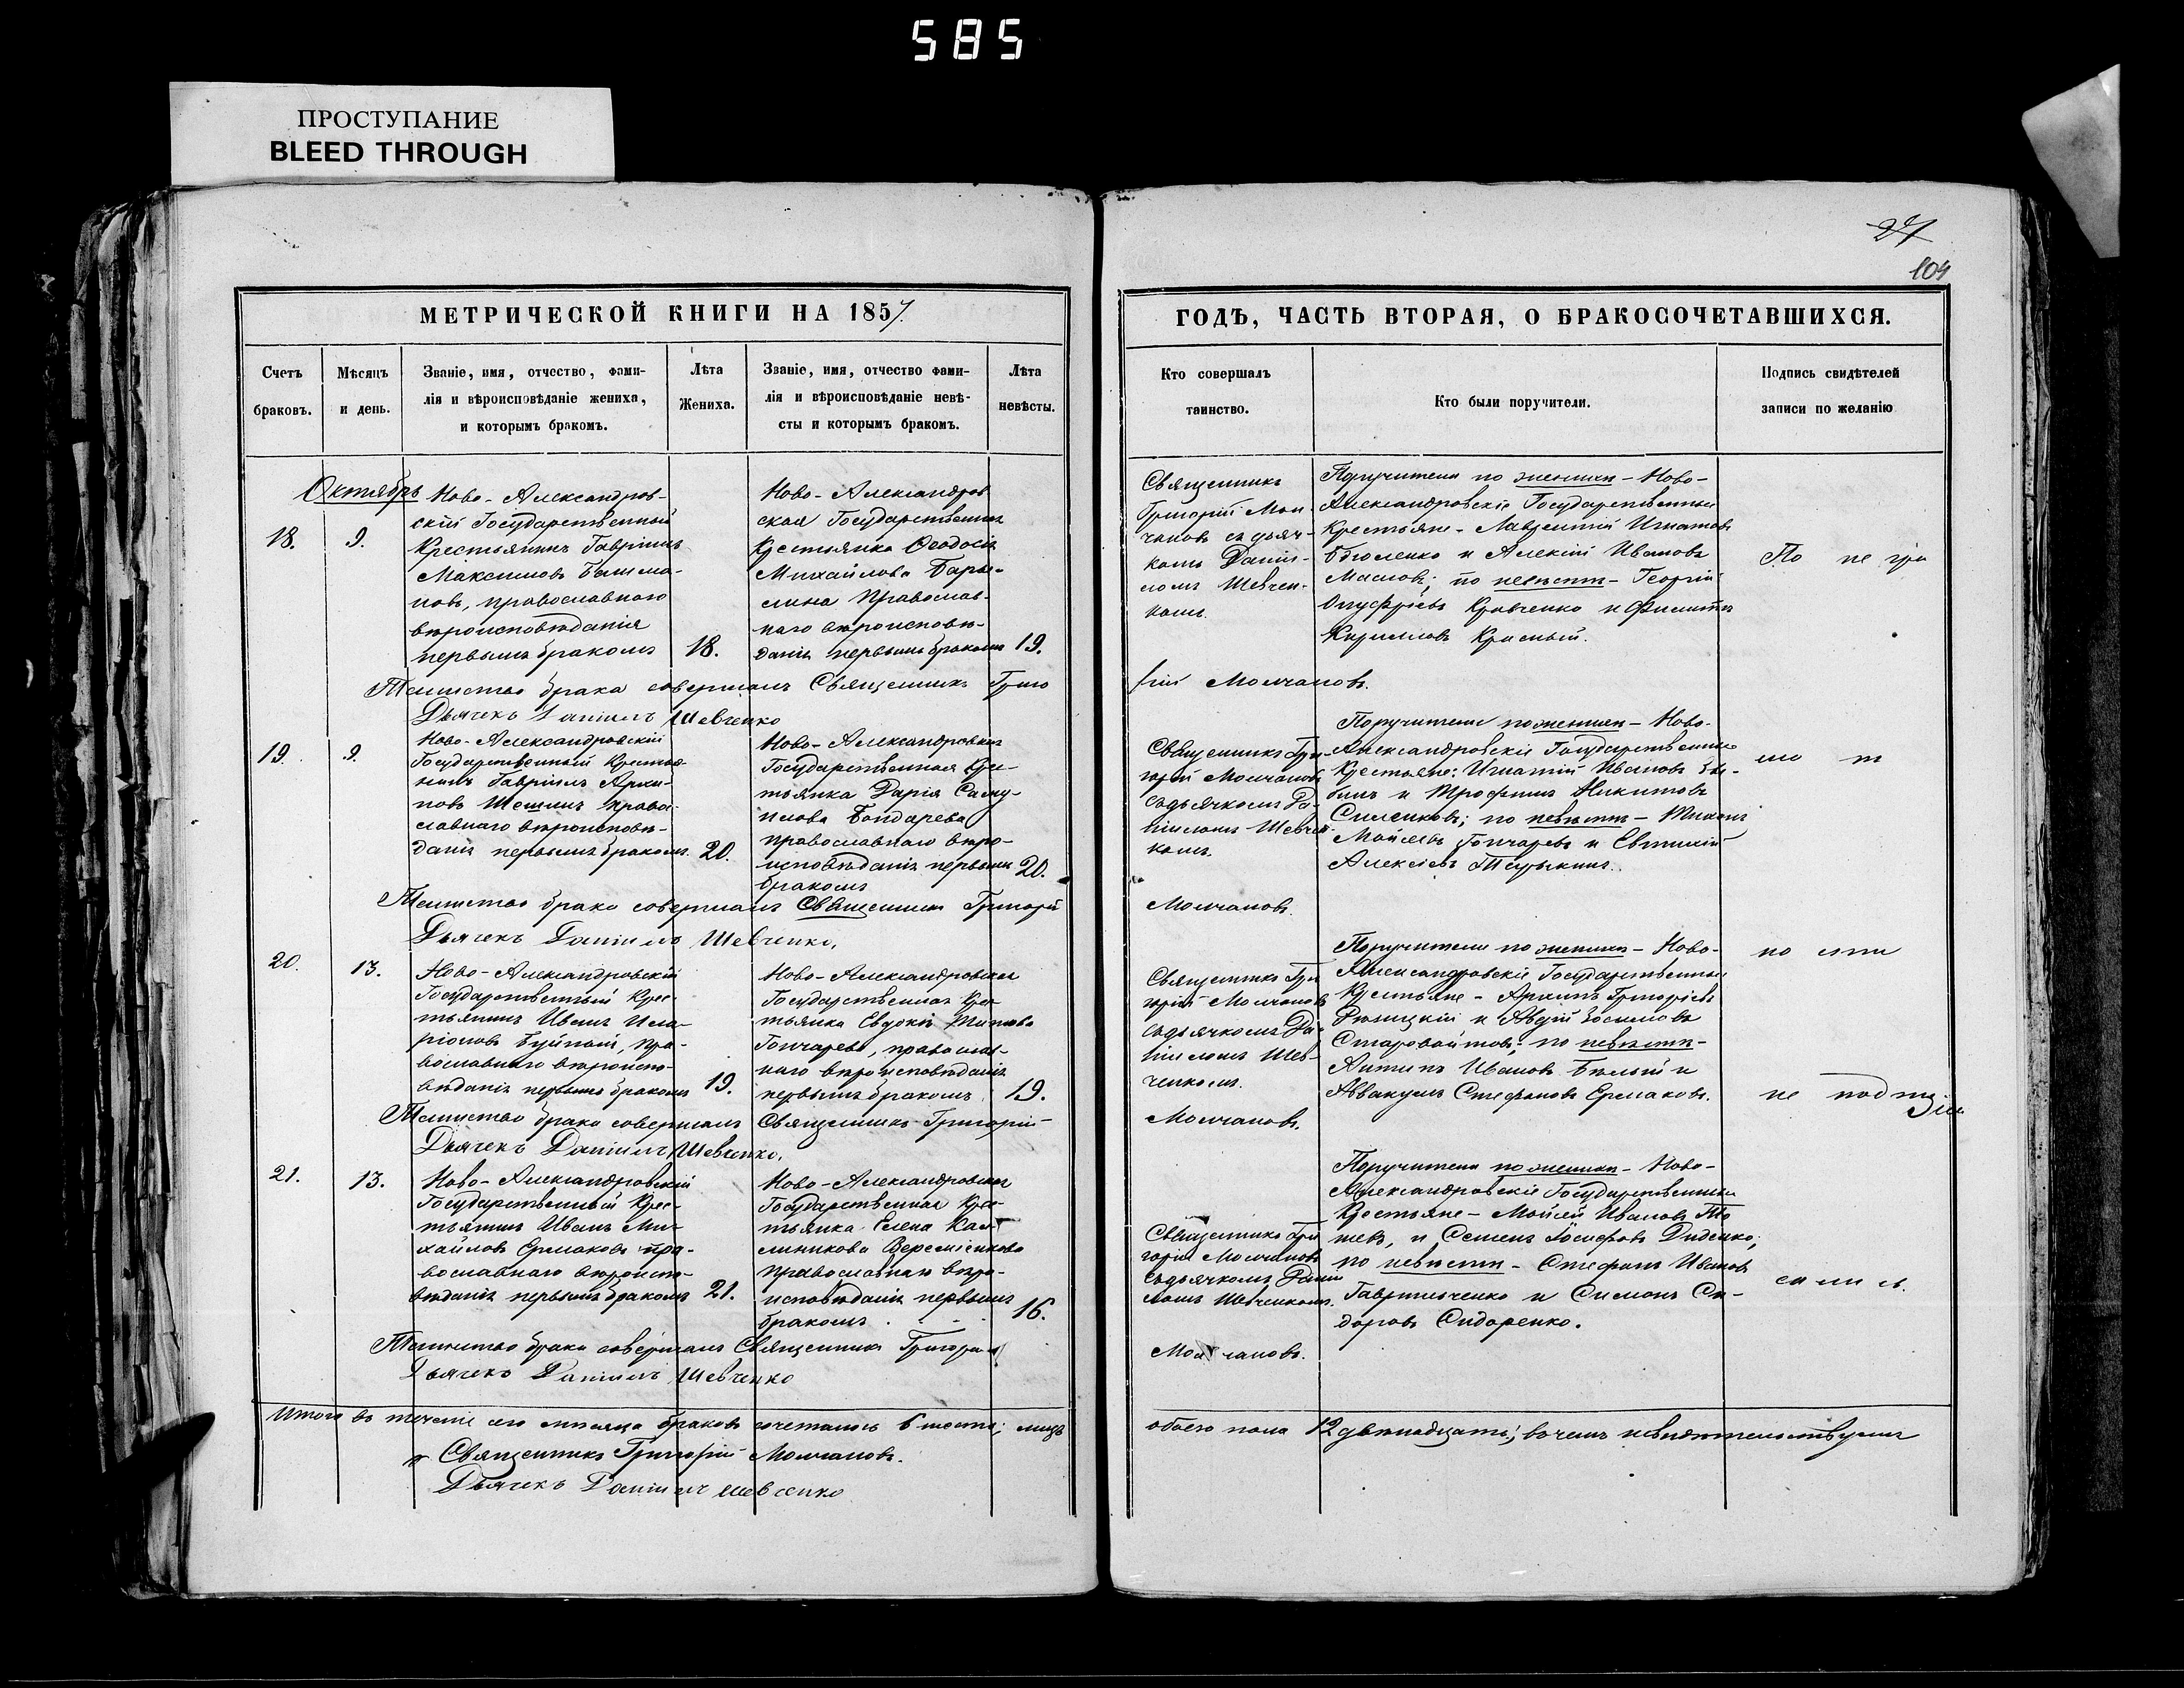 585
ПРОСТУПАНИЕ
BLEED THROUGH
27
104
МЕТРИЧЕСКОЙ КНИГИ НА 1857
Счетъ браковъ.
Мѣсяцъ и день.
Званіе, имя, отчество, фами-
лія и вѣроисповѣданіе жениха,
и которымъ бракомъ.
Лѣта
Жениха.
Званіе, имя, отчество фами-
лія и вѣроисповѣданіе невѣ-
сты и которымъ бракомъ.
Лѣта
невѣсты.
Октябрь
18.
9.
Ново-Александров-
скій Государственный
Крестьянинъ Гавріилъ
Максимовъ
новъ, православнаго
вѣроисповѣданія
первымъ бракомъ
18.
Ново-Александров
ская Государственная
Крестьянка Ѳеодосія
Михайлова
Православ-
наго вѣроисповѣ-
данія первымъ бракомъ
19.
Таинство брака совершалъ Священникъ Григо
Дьячекъ Даніилъ Шевченко
19.
9.
Ново-Александровскій
Государственный Крестья-
нинъ Гавріилъ Архи-
повъ Шешинъ право-
славнаго вѣроисповѣ-
данія первымъ бракомъ.
20.
Ново-Александровская
Государственная Крес-
тьянка Дарія Саму-
илова Бондарева
православнаго вѣро-
исповѣданія первымъ
бракомъ
20.
Таинство брака совершалъ Священникъ Григорій
Дьячекъ Даніилъ Шевченко.
20.
13.
Ново-Александровскій
Государственный Крес-
тьянинъ Иванъ Ила-
ріоновъ Буйный, пра-
вославнаго вѣроиспо-
вѣданія первымъ бракомъ
19.
Ново-Александровская
Государственная Крес-
тьянка Евдокія Титова
Гончарева, православ-
наго вѣроисповѣданія
первымъ бракомъ.
19.
Таинство брака совершалъ Священникъ Григорій
Дьячекъ Даніилъ Шевченко.
21.
13.
Ново-Александровскій
Государственный Крес-
тьянинъ Иванъ Ми-
хайловъ Ермаковъ пра-
вославнаго вѣроиспо-
вѣданія первымъ бракомъ
21.
Ново-Александровская
Государственная Крес-
тьянка Елена Кал-
линикова
православнаго вѣро-
исповѣданія первымъ
бракомъ
16.
Таинство брака совершалъ Священникъ Григорій
Дьячекъ Даніилъ Шевченко
Итого въ теченіе сего мѣсяца браковъ сочеталось 6 шесть; лицъ
Священникъ Григорій Молчановъ.
Дьячекъ Даніилъ Шевченко
ГОДЪ, ЧАСТЬ ВТОРАЯ, О БРАКОСОЧЕТАВШИХСЯ.
Кто совершалъ
таинство.
Кто были поручители.
Подпись свидѣтелей
записи по желанію
Священникъ
Григорій Мол
чановъ съ дьяч-
комъ Даніи-
ломъ Шевчен-
комъ.
Поручители по женихѣ - Ново-
Александровскіе Государственные
Крестьяне - Лаврентій Игнатовъ
и Алексій Ивановъ
Масловъ; по невѣстѣ - Георгій
Онуфріевъ Кравченко и Филиппъ
Кирилловъ Красный.
По не гра
рій Молчановъ.
Священникъ Гри-
горій Молчановъ
съ дьячкомъ Да-
ніиломъ Шевчен
комъ.
Поручители по женихѣ - Ново-
Александровскіе Государственные
Крестьяне: Игнатій Ивановъ
и Трофимъ Никитовъ
по невѣстѣ - Тихонъ
Мойсеевъ Гончаревъ и Евтихій
Алексіевъ
мо т
Молчановъ.
Священникъ Гри
горій Молчановъ
съ дьячкомъ Да-
ніиломъ Шев-
ченкомъ.
Поручители по женихѣ - Ново-
Александровскіе Государственные
Крестьяне - Архипъ Григорієвъ
и Авдій Зосимовъ
Старовойтовъ; по невѣстѣ -
Антипъ Ивановъ Бѣлый и
Аввакумъ Стефановъ Ермаковъ.
не под
Молчановъ.
Священникъ Гри
горій Молчановъ
съ дьячкомъ Дании
ломъ Шевченкомъ.
Поручители по женихѣ - Ново-
Александровскіе Государственные
Крестьяне - Мойсей Ивановъ
и Семенъ Іосифовъ Диденко;
по невѣстѣ - Стефанъ Ивановъ
Гавриленко и Симонъ Си-
доровъ Сидоренко.
са ли сь.
Молчановъ.
обоего пола 12 двѣнадцать; въ чемъ и свидѣтельствуемъ